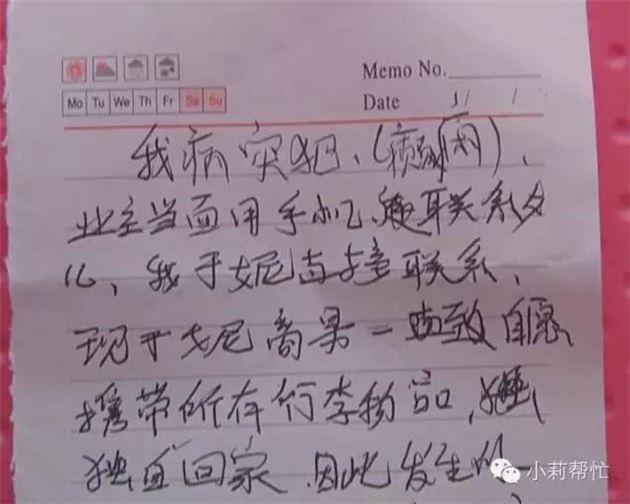 Memo No.
Mo Tu We Th Fr Sa Su
Date / /
我病突犯、(癫痫),
业主当面用手机联系女
儿,我于妮直接联系,
现于妮商果一致自愿
携带所有行李物品,
独自回家,因此发生的一
小莉帮忙